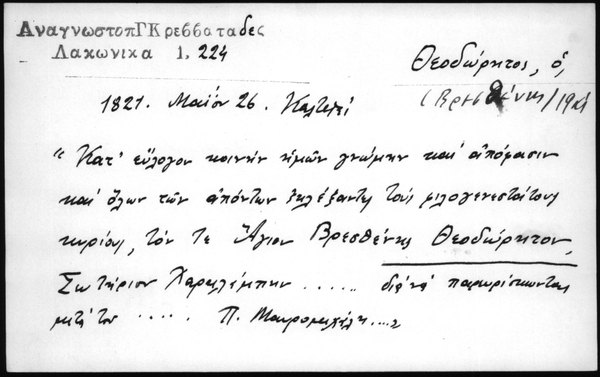 ΑναγνωστοπΓΚρεββαταδες
Λακωνικα 1, 224
Θεοδώρητος, ὁ,
(Βρεσθένης/1821
1821. Μαΐου 26. Καλτεζαί
"Κατ' εὔλογον κοινήν ἡμῶν γνώμην καί ἀπόφασιν
καί ὅλων τῶν ἀπόντων ἐκλέξαντες τούς φιλογενεστάτους
κυρίους, τόν τε Ἅγιον Βρεσθένης Θεοδώρητον,
Σωτήριον Χαραλάμπην ...... διά νά παρευρίσκωνται
μετά τοῦ ..... Π. Μαυρομιχάλη....